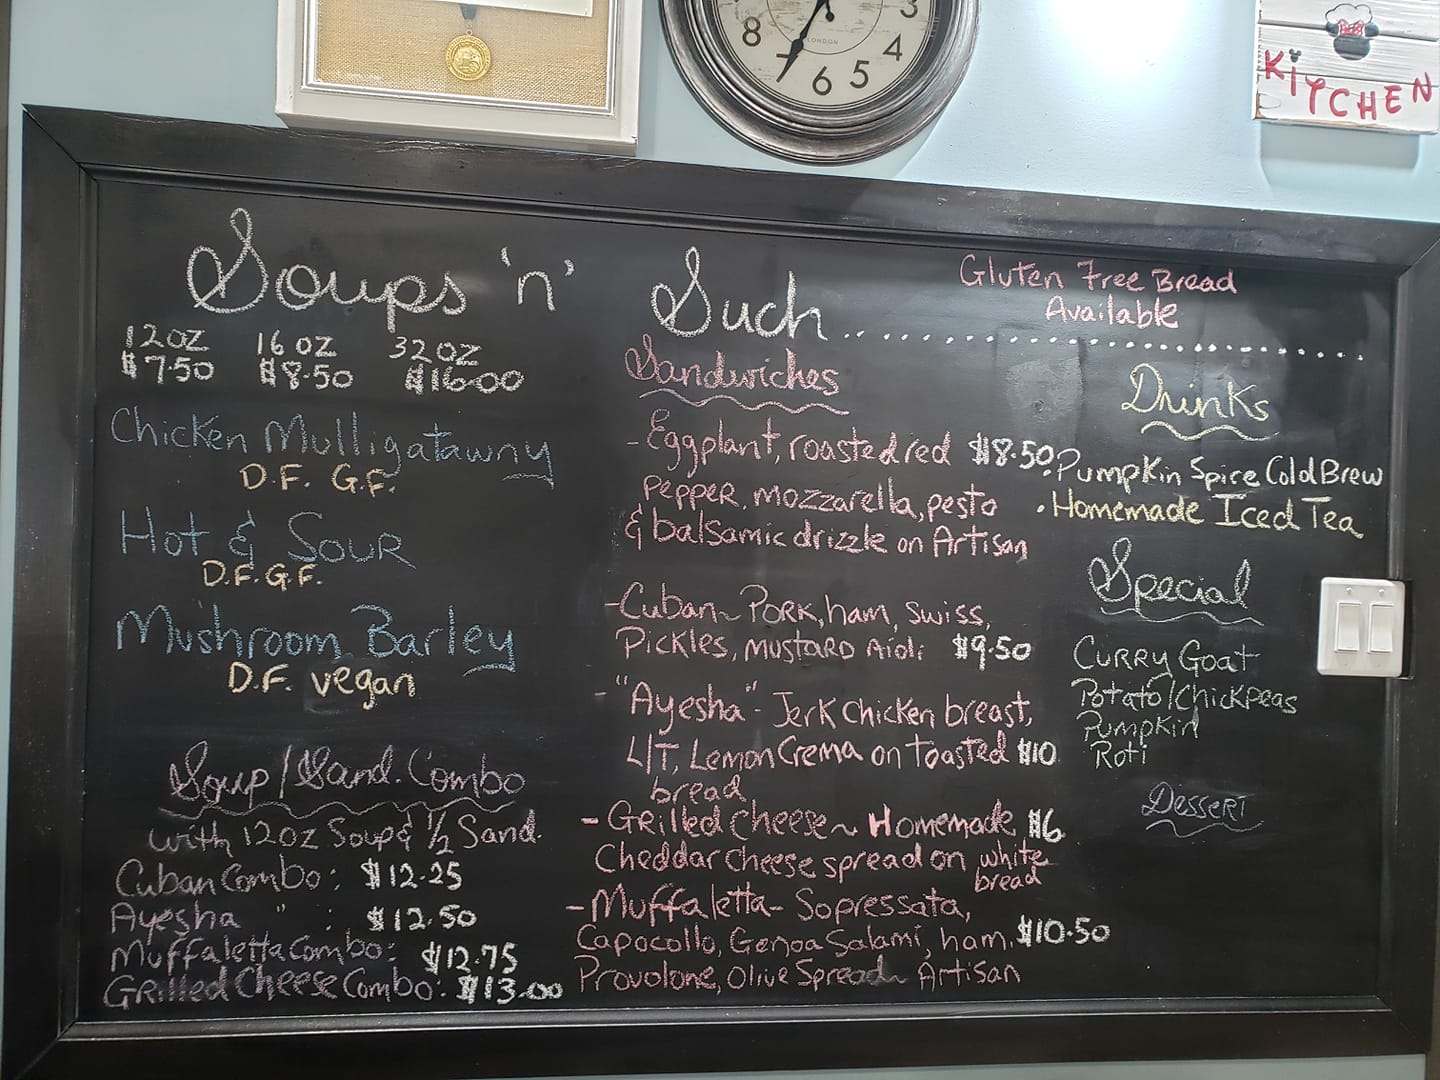 8
7
6
5
4
3
LONDON
KITCHEN
Soups 'n' Such...
Gluten Free Bread
Available
12oz 16oz 32oz
$7.50 $8.50 $16.00
Chicken Mulligatawny
D.F. G.F.
Hot & Sour
D.F. G.F.
Mushroom Barley
D.F. vegan
Soup/Sand. Combo
with 12oz Soup & 1/2 Sand.
Cuban Combo: $12.25
Ayesha " : $12.50
Muffaletta Combo: $12.75
Grilled Cheese Combo: $13.00
Sandwiches
- Eggplant, roasted red $8.50
pepper, mozzarella, pesto
& balsamic drizzle on Artisan
- Cuban ~ Pork, ham, swiss,
Pickles, Mustard Aioli $9.50
- "Ayesha" - Jerk Chicken breast,
L/T, Lemon Crema on toasted $10
bread
- Grilled cheese ~ Homemade $6
Cheddar cheese spread on white
bread
- Muffaletta - Sopressata,
Capocollo, Genoa Salami, ham, $10.50
Provolone, Olive Spread Artisan
Drinks
• Pumpkin Spice Cold Brew
• Homemade Iced Tea
Special
Curry Goat
Potato/Chickpeas
Pumpkin
Roti
Dessert